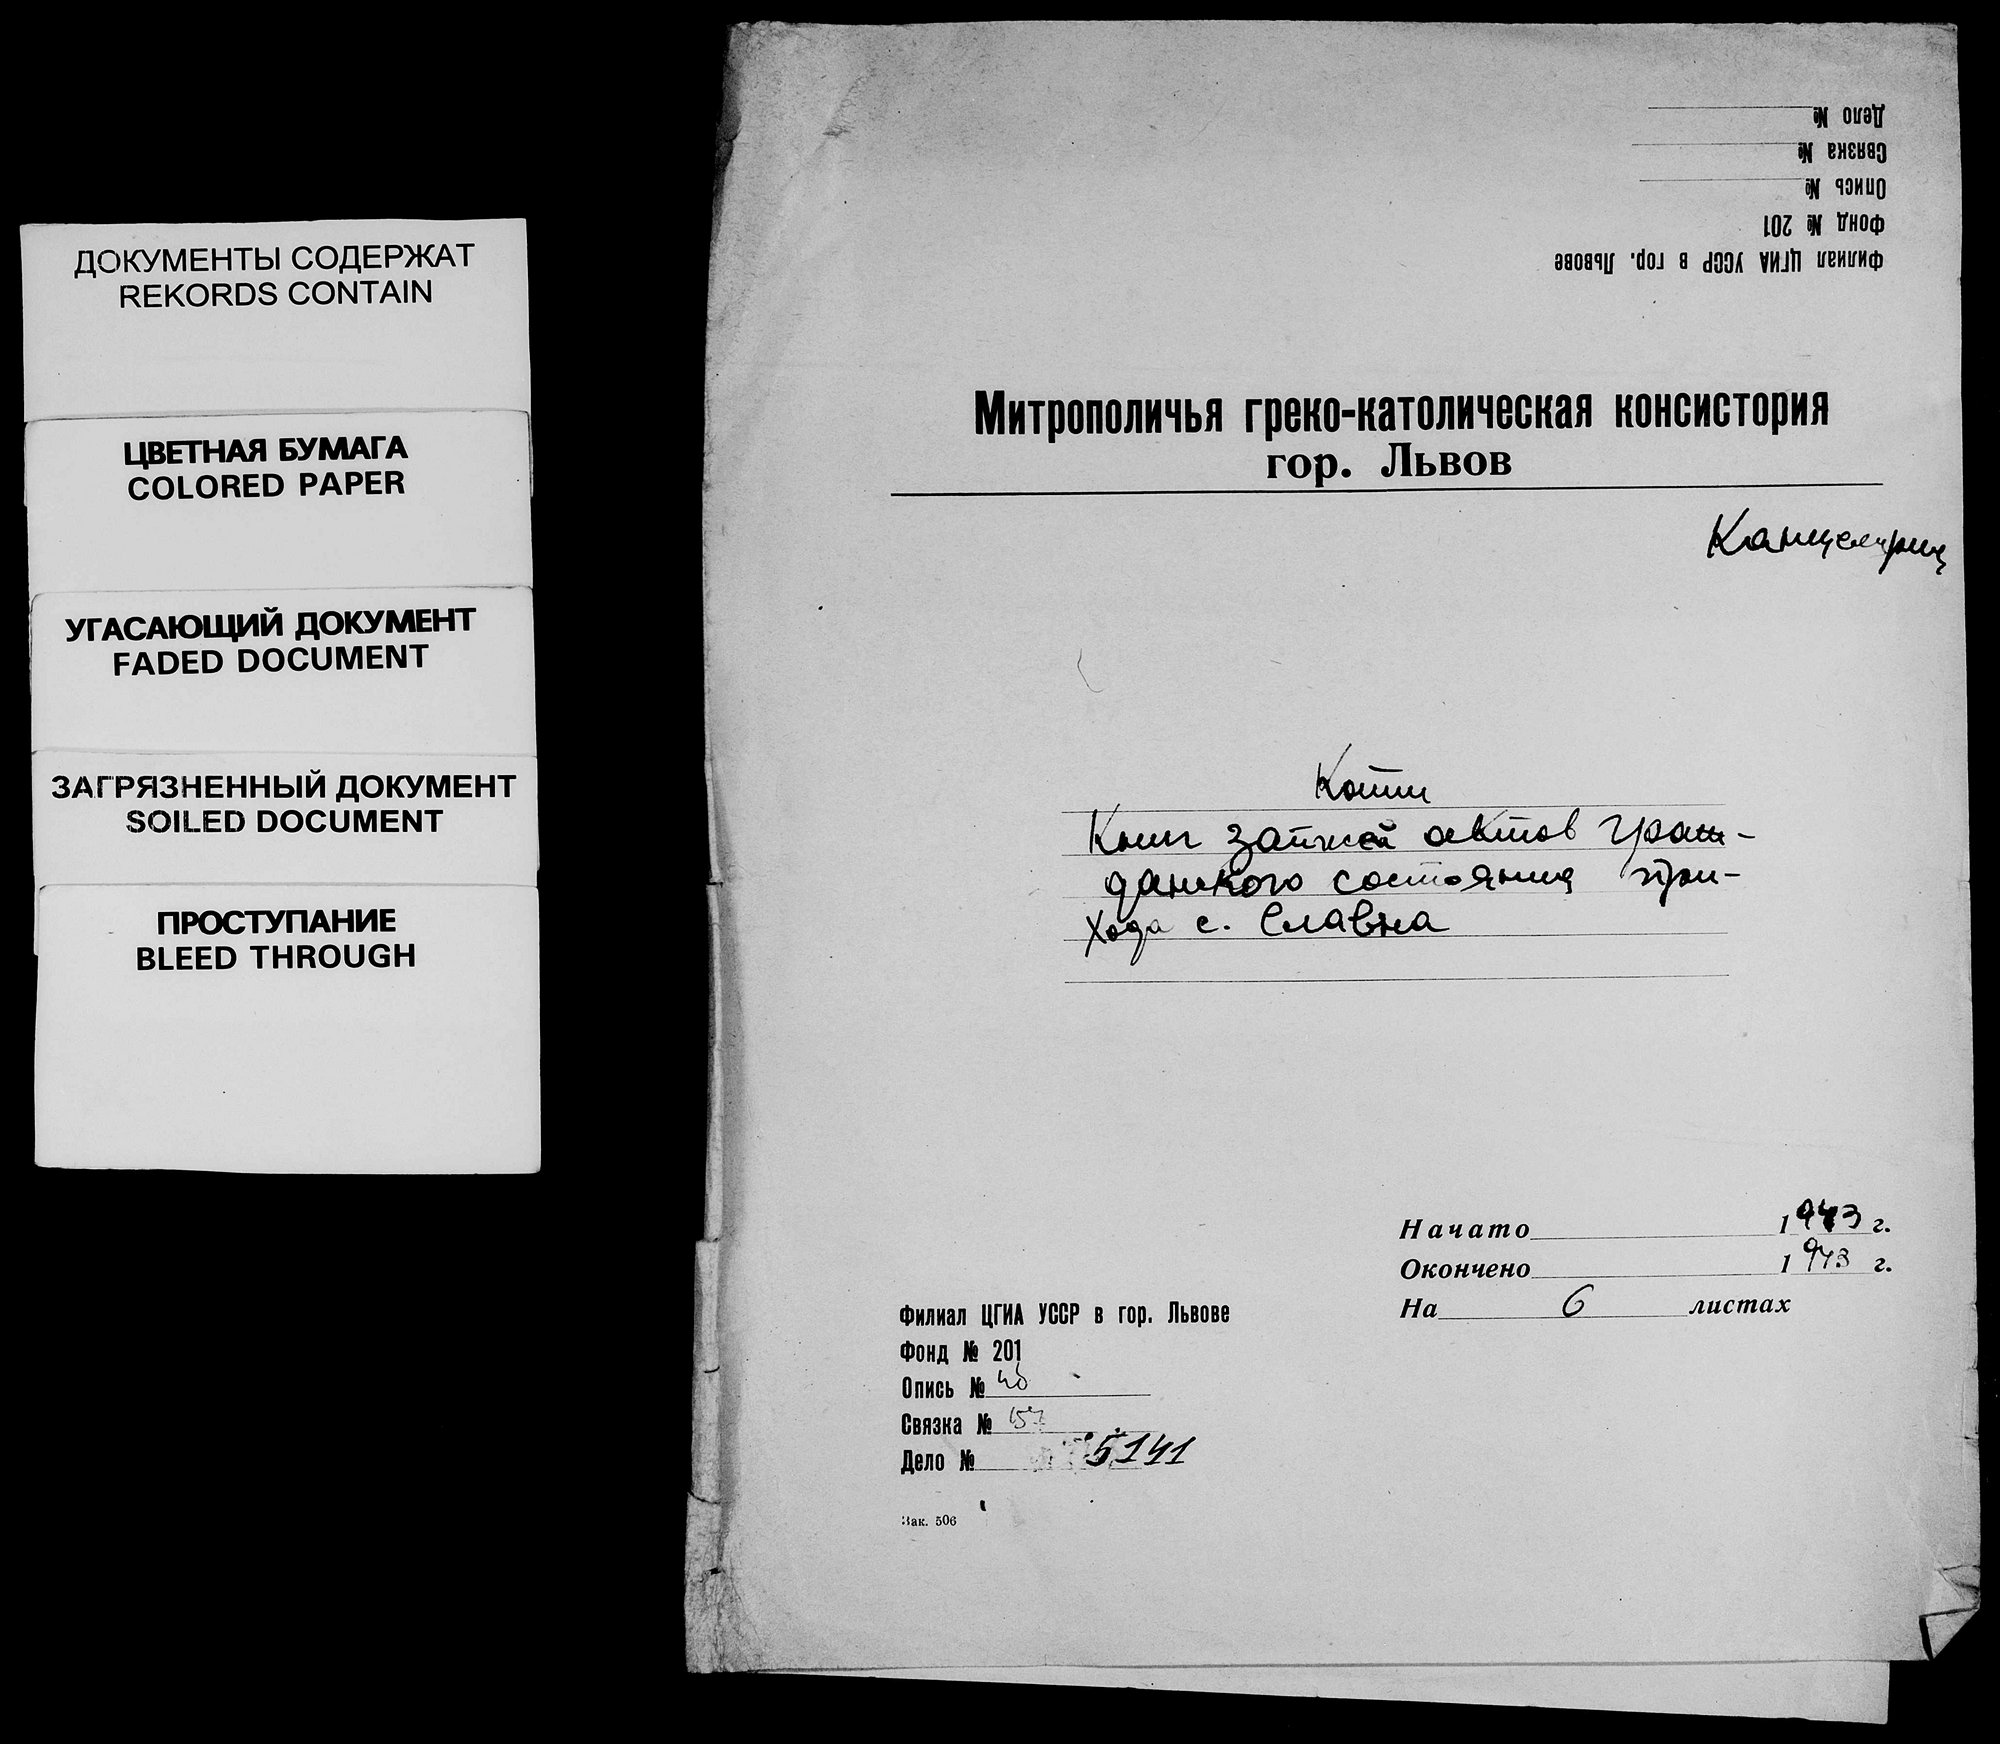 ДОКУМЕНТЫ СОДЕРЖАТ
REKORDS CONTAIN
ЦВЕТНАЯ БУМАГА
COLORED PAPER
УГАСАЮЩИЙ ДОКУМЕНТ
FADED DOCUMENT
ЗАГРЯЗНЕННЫЙ ДОКУМЕНТ
SOILED DOCUMENT
ПРОСТУПАНИЕ
BLEED THROUGH
Филиал ЦГИА УССР в гор. Львове
Фонд № 201
Опись №
Связка №
Дело №
Митрополичья греко-католическая консистория
гор. Львов
Канцелярия
Копии
Книг записей актов граж-
данского состояния при-
хода с. Славна
Начато 1943 г.
Окончено 1943 г.
На 6 листах
Филиал ЦГИА УССР в гор. Львове
Фонд № 201
Опись №
Связка № 157
Дело № 5141
Зак. 506